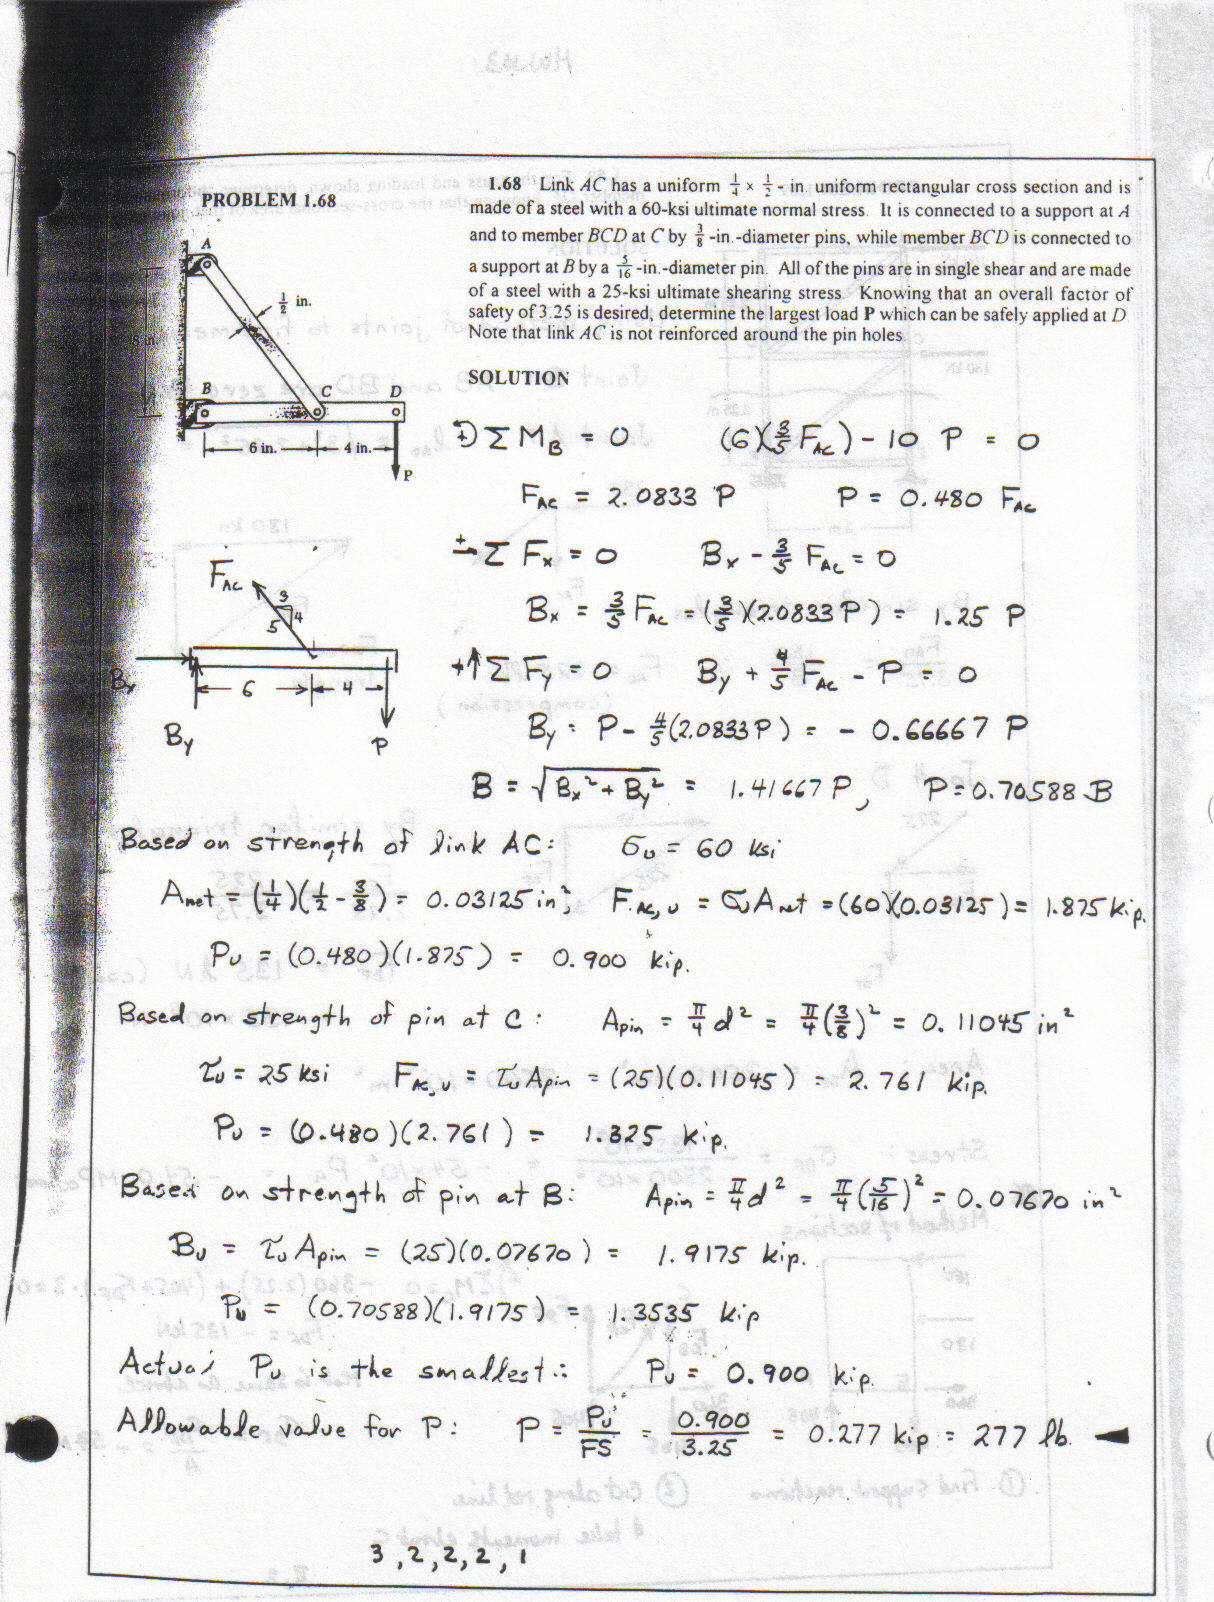 PROBLEM 1.68
1.68 Link AC has a uniform 1/4 × 1/2 - in. uniform rectangular cross section and is
made of a steel with a 60-ksi ultimate normal stress. It is connected to a support at A
and to member BCD at C by 3/8 -in.-diameter pins, while member BCD is connected to
a support at B by a 5/16 -in.-diameter pin. All of the pins are in single shear and are made
of a steel with a 25-ksi ultimate shearing stress. Knowing that an overall factor of
safety of 3.25 is desired, determine the largest load P which can be safely applied at D.
Note that link AC is not reinforced around the pin holes.
A
1/2 in.
8 in.
B
C
D
6 in.
4 in.
P
SOLUTION
+) Σ M_B = 0 (6)(3/5 F_AC) - 10 P = 0
F_AC = 2.0833 P P = 0.480 F_AC
+→ Σ F_x = 0 B_x - 3/5 F_AC = 0
B_x = 3/5 F_AC = (3/5)(2.0833 P) = 1.25 P
+↑ Σ F_y = 0 B_y + 4/5 F_AC - P = 0
B_y = P - 4/5 (2.0833 P) = - 0.66667 P
B = √(B_x² + B_y²) = 1.41667 P, P = 0.70588 B
F_AC
3
4
5
B_x
6
4
B_y
P
Based on strength of link AC: σ_U = 60 ksi
A_net = (1/4)(1/2 - 3/8) = 0.03125 in², F_AC,U = σ_U A_net = (60)(0.03125) = 1.875 kip.
P_U = (0.480)(1.875) = 0.900 kip.
Based on strength of pin at C: A_pin = π/4 d² = π/4 (3/8)² = 0.11045 in²
τ_U = 25 ksi F_AC,U = τ_U A_pin = (25)(0.11045) = 2.761 kip.
P_U = (0.480)(2.761) = 1.325 kip.
Based on strength of pin at B: A_pin = π/4 d² = π/4 (5/16)² = 0.07670 in²
B_U = τ_U A_pin = (25)(0.07670) = 1.9175 kip.
P_U = (0.70588)(1.9175) = 1.3535 kip
Actual P_U is the smallest ∴ P_U = 0.900 kip.
Allowable value for P: P = P_U/FS = 0.900/3.25 = 0.277 kip = 277 lb. ◄
3, 2, 2, 2, 1